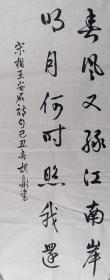 春风又绿江南岸
明月何时照我还
宋相王安石诗句己丑